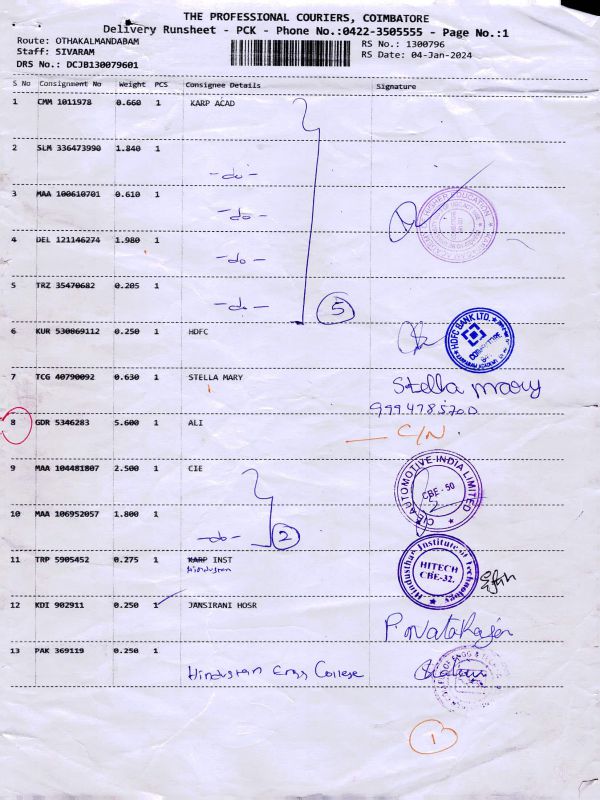 THE PROFESSIONAL COURIERS, COIMBATORE
Delivery Runsheet - PCK - Phone No.:0422-3505555 - Page No.:1
Route: OTHAKALMANDABAM RS No.: 1300796
Staff: SIVARAM RS Date: 04-Jan-2024
DRS No.: DCJB130079601
S No Consignment No Weight PCS Consignee Details Signature
1 CMM 1011978 0.660 1 KARP ACAD
2 SLM 336473990 1.840 1 -do-
3 MAA 100610701 0.610 1 -do-
4 DEL 121146274 1.980 1 -do-
5 TRZ 35470682 0.205 1 -do- 5
6 KUR 530869112 0.250 1 HDFC
HDFC BANK LTD.
COIMBATORE
7 TCG 40790092 0.630 1 STELLA MARY Stella mary
8 GDR 5346283 5.600 1 ALI C/N
9 MAA 104481807 2.500 1 CIE
CIE AUTOMOTIVE INDIA LIMITED
CBE-50
10 MAA 106952057 1.800 1 -do- 2
11 TRP 5905452 0.275 1 KARP INST
Hindustan
Hindusthan Institute of Technology
HITECH
CBE-32.
12 KDI 902911 0.250 1 JANSIRANI HOSR P. Natarajan
13 PAK 369119 0.250 1 Hindustan Engg College
1